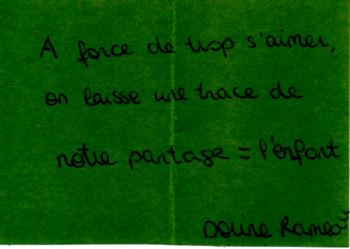 A force de trop s'aimer,
on laisse une trace de
notre partage = l'enfant
Doline